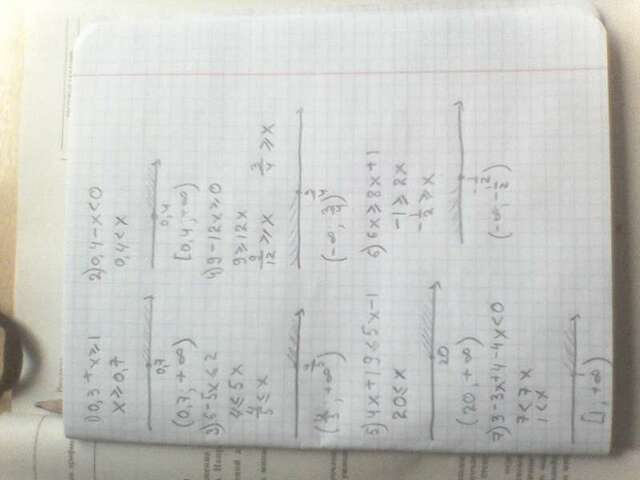 1) 0,3 + x ≥ 1
x ≥ 0,7
0,7
(0,7, +∞)
2) 0,4 - x < 0
0,4 < x
0,4
[0,4, +∞)
3) 6 - 5x ≤ 2
4 ≤ 5x
4/5 ≤ x
4) 9 - 12x ≥ 0
9 ≥ 12x
9/12 ≥ x 3/4 ≥ x
3/4
(-∞, 3/4)
5) 4x + 19 ≤ 5x - 1
20 ≤ x
20
(20, +∞)
6) 6x ≥ 8x + 1
-1 ≥ 2x
-1/2 ≥ x
-1/2
(-∞, -1/2)
7) 3 - 3x + 4 - 4x < 0
7 < 7x
1 < x
1
[1, +∞)